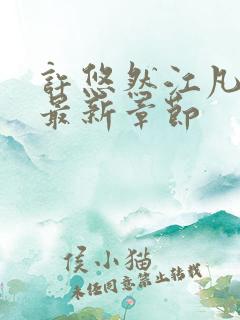 许悠然江凡
最新章节
侯小猫
未经同意禁止转载